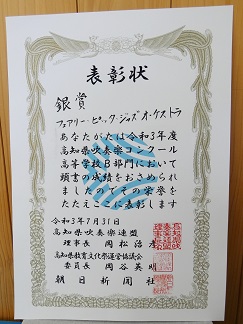 表彰状
銀賞
フェアリー・ピッグ・ジャズオーケストラ
あなたがたは令和3年度
高知県吹奏楽コンクール
高等学校B部門において
頭書の成績をおさめられ
ましたのでその栄誉を
たたえここに表彰します
令和3年7月31日
高知県吹奏楽連盟
理事長 岡松浩彦
高知県教育文化祭運営協議会
委員長 岡谷英明
朝日新聞社